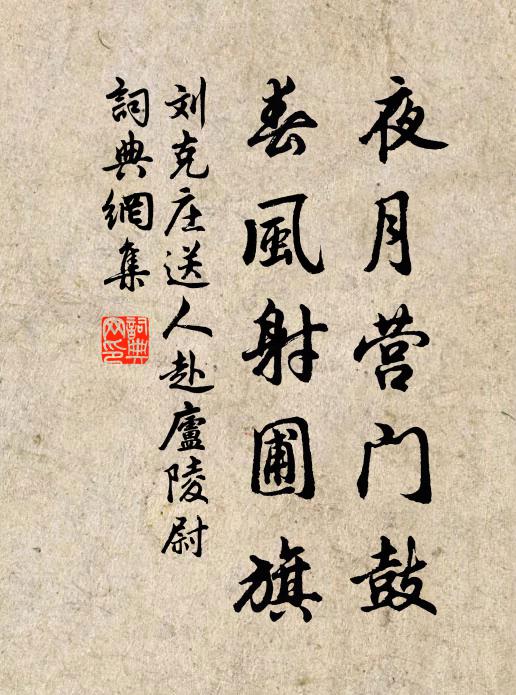 夜月营门鼓
春風射圃旗
刘克庄送人赴廬陵尉
詞典網集
詞典
网印